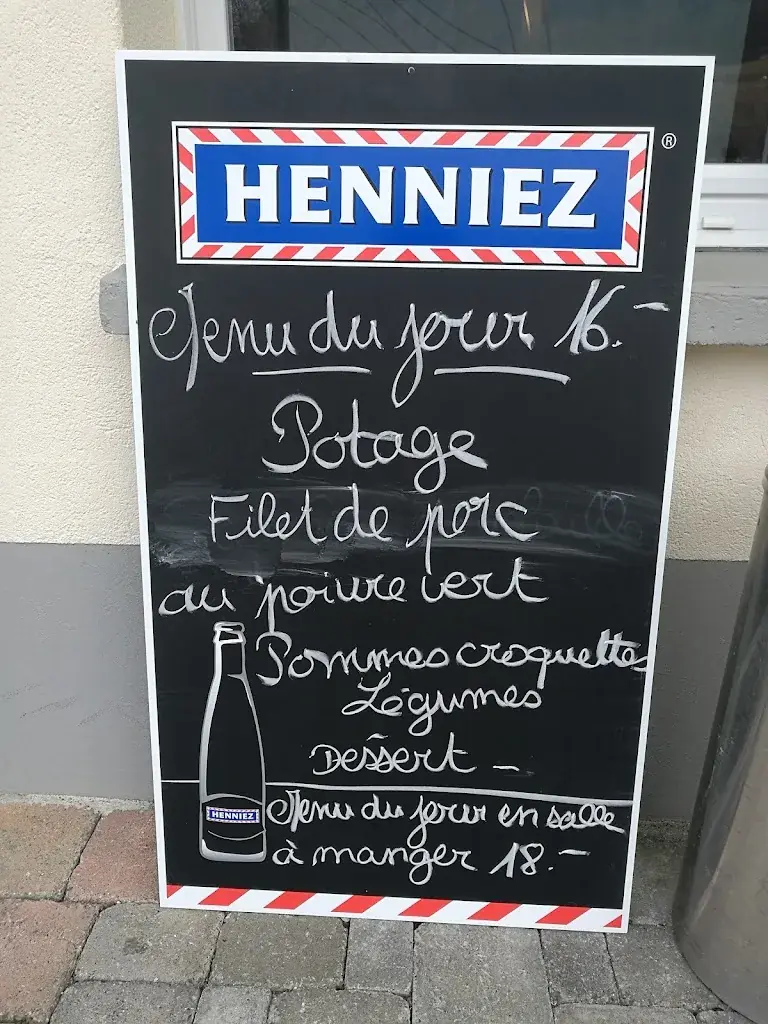 HENNIEZ ®
Menu du jour 16.-
Potage
Filet de porc
au poivre vert
Pommes croquettes
Légumes
Dessert -
HENNIEZ
Menu du jour en salle
à manger 18.-